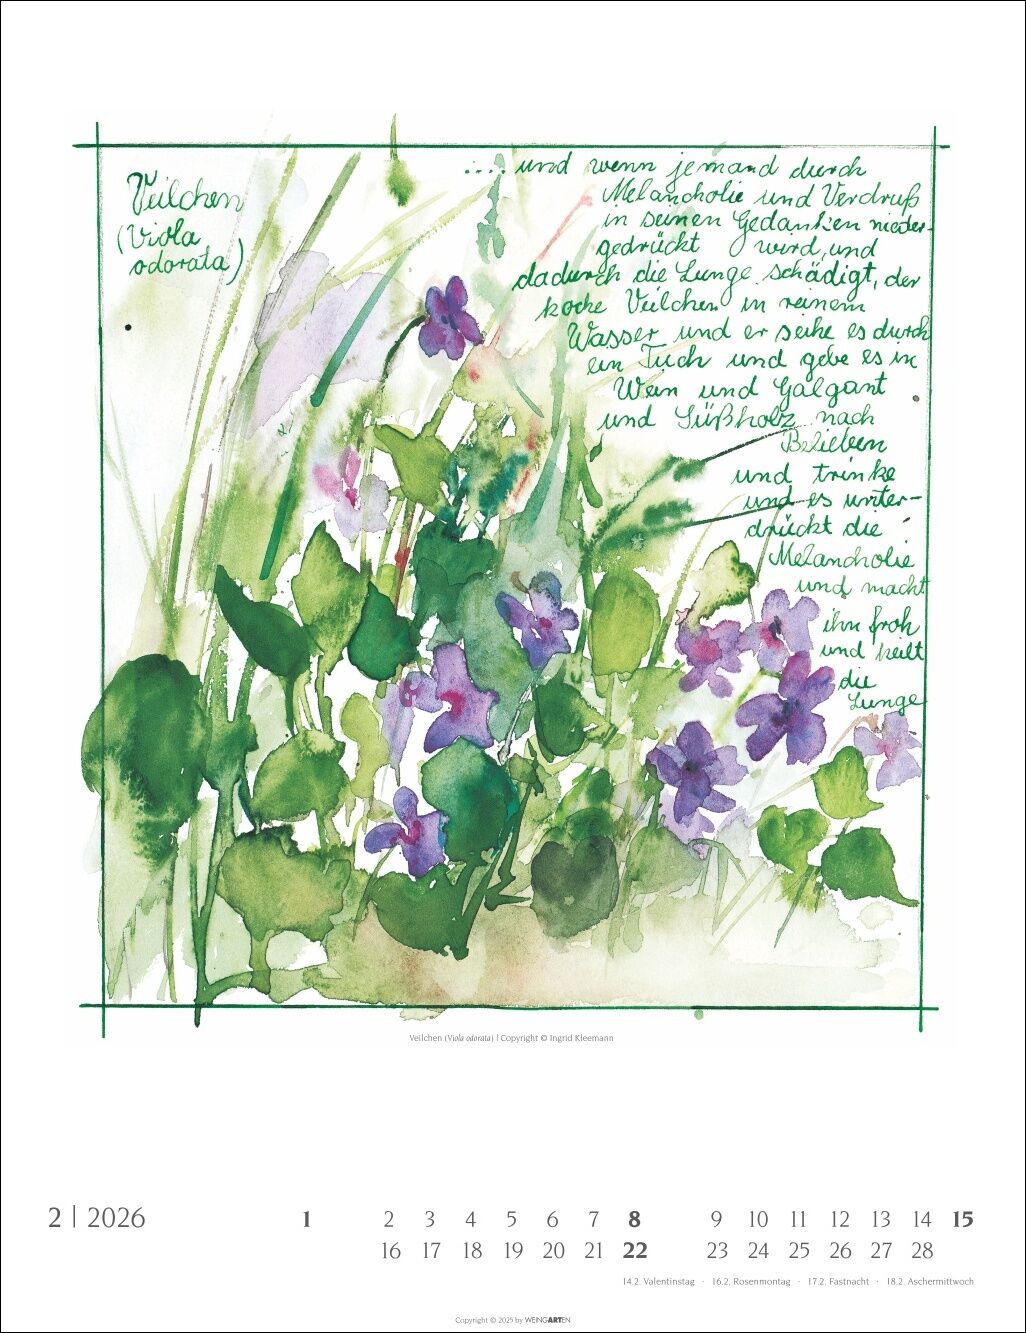 Veilchen
(Viola
odorata)
.... und wenn jemand durch
Melancholie und Verdruß
in seinen Gedanken nieder-
gedrückt wird, und
dadurch die Lunge schädigt, der
koche Veilchen in reinem
Wasser und er seihe es durch
ein Tuch und gebe es in
Wein und Galgant
und Süßholz nach
Belieben
und trinke
und es unter-
drückt die
Melancholie
und macht
ihn froh
und heilt
die
Lunge
Veilchen (Viola odorata) | Copyright © Ingrid Kleemann
2 | 2026
1 2 3 4 5 6 7 8 9 10 11 12 13 14 15
16 17 18 19 20 21 22 23 24 25 26 27 28
14.2. Valentinstag · 16.2. Rosenmontag · 17.2. Fastnacht · 18.2. Aschermittwoch
Copyright © 2025 by WEINGARTEN